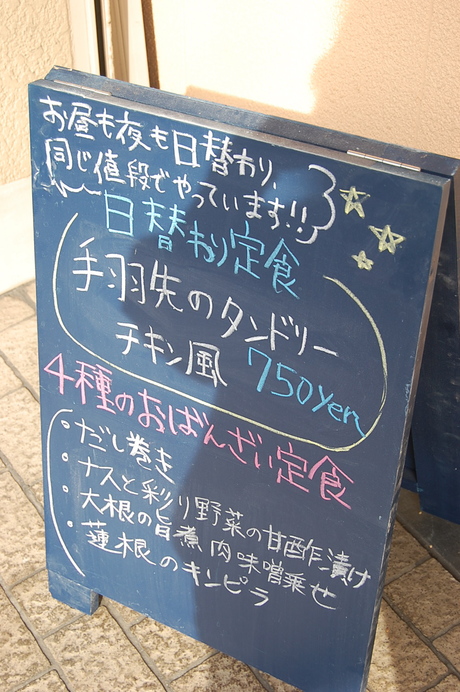 お昼も夜も日替わり、
同じ値段でやっています!!
日替わり定食
手羽先のタンドリー
チキン風 750yen
4種のおばんざい定食
・だし巻き
・ナスと彩り野菜の甘酢漬け
・大根の旨煮 肉味噌乗せ
・蓮根のキンピラ